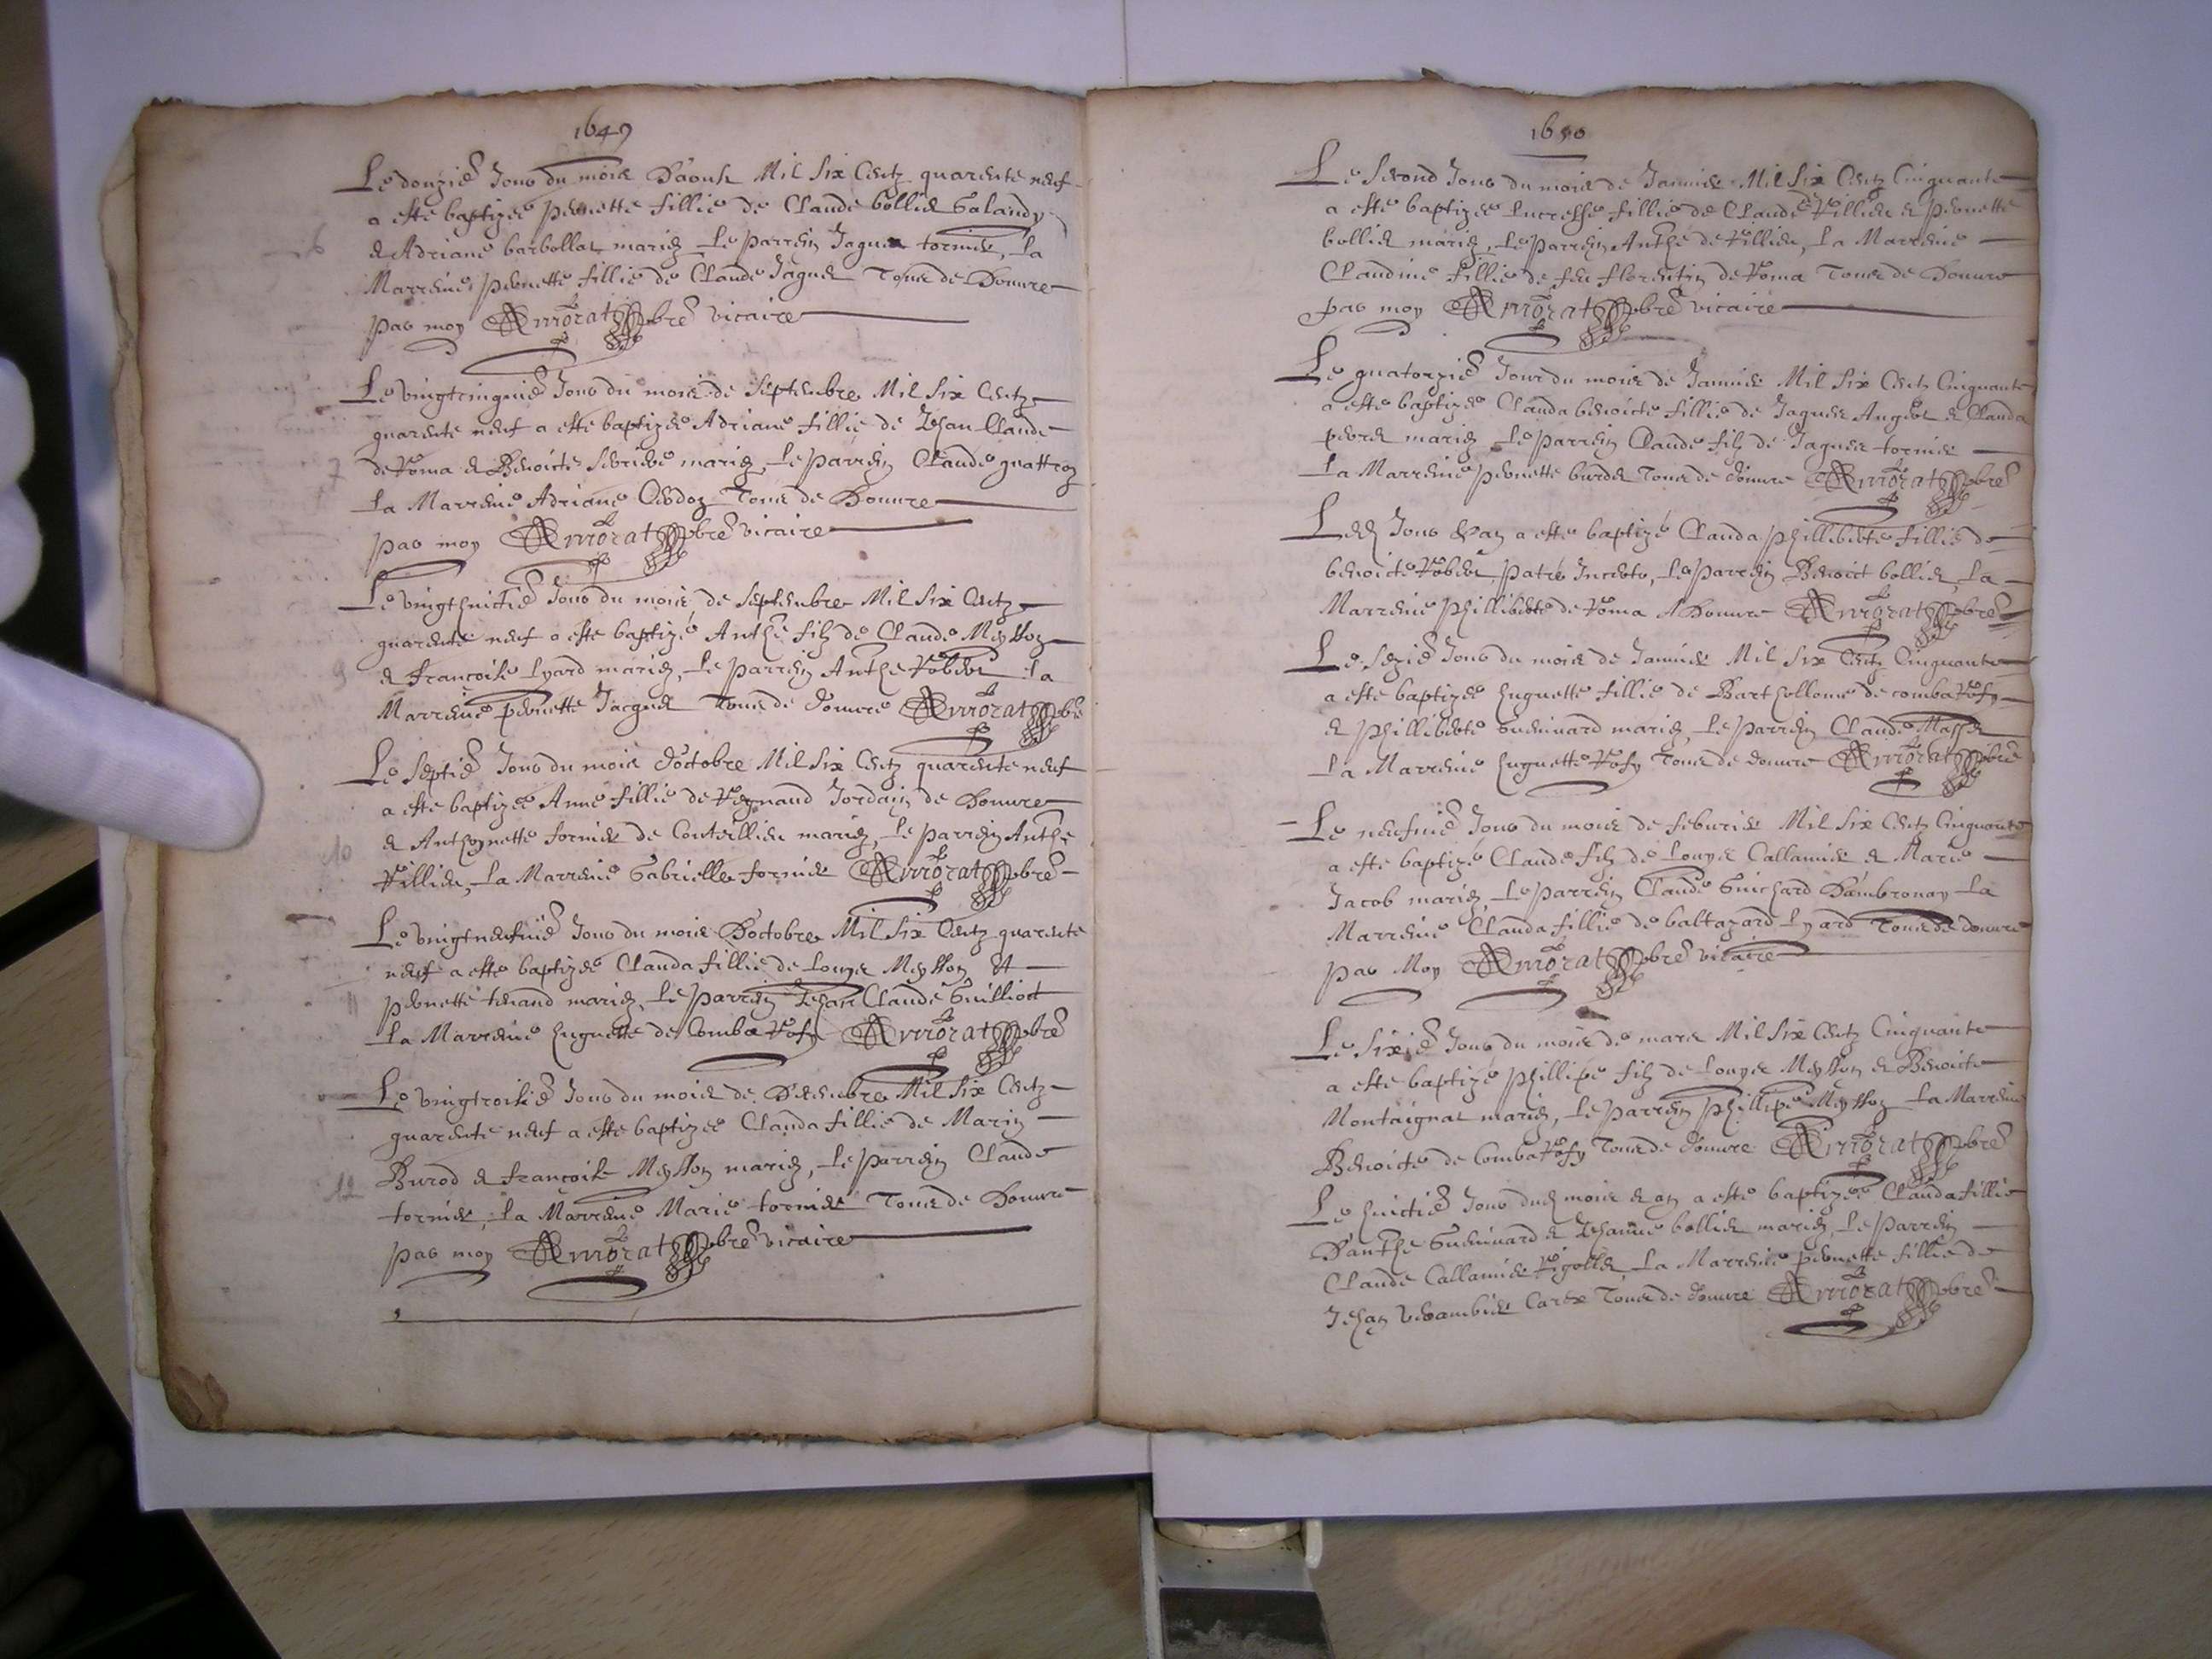 1649
Le douzie Jour du mois Daoust Mil Six Centz quarente neuf
6
a este baptizée pernette fillie de Claude bollier Galandy
& Adriane barbollat mariez, Le parrein Jaques tornier, La
Marreine pernette fillie de Claude Jaques Tous de Douvre
par moy Amorat pbre vicaire
Le vingtcinquie Jour du mois de Septembre Mil Six Centz
quarente neuf a este baptizée Adriane fillie de Jehan Claude
7
de Roma & Benoicte mariez, Le parrein Claude
La Marreine Adriane Tous de Douvre
par moy Amorat pbre vicaire
Le vingthuictie Jour du mois de Septembre Mil Six Centz
quarente neuf a este baptizé Anthe filz de Claude Meysson
9
& francoise Lyard mariez, Le parrein Anthe Robert La
Marreine pernette Jacques Tous de douvre Amorat pbre
Le Septie Jour du mois doctobre Mil Six Centz quarente neuf
a este baptizée Anne fillie de Reynaud Jordain de Douvre
10
& Anthoynette tornier de mariez, Le parrein Anthe
Rillieu, La Marreine Gabrielle tornier Amorat pbre
Le vingtneufuie Jour du mois Doctobre Mil Six Centz quarente
neuf a este baptizée Clauda fillie de Louys Meysson Et
11
pernette tenand mariez, Le parrein Jehan Claude Guilliot
La Marreine huguette de Comba Rofy Amorat pbre
Le vingtroisie Jour du mois de Decembre Mil Six Centz
quarente neuf a este baptizée Clauda fillie de Marin
12
Burod & francoise Meysson mariez, Le parrein Claude
tornier, La Marreine Marie tornier Tous de Douvre
par moy Amorat pbre vicaire
1650
Le Second Jour du mois de Janvier Mil Six Centz Cinquante
a este baptizée Lucresse fillie de Claude Rillieu & pernette
bollier mariez, Le parrein Anthe de Rillieu, La Marreine
Claudine fillie de feu florentin de Roma Tous de Douvre
par moy Amorat pbre vicaire
Le quatorzie Jour du mois de Janvier Mil Six Centz Cinquante
a este baptizée Clauda benoicte fillie de Jaques & Clauda
mariez Le parrein Claude filz de Jaques tornier
La Marreine pernette Tous de douvre Amorat pbre
Jour & an a este baptizé Clauda philliberte fillie de
benoicte Robert patre Incerto, Le parrein Benoict bollier, La
Marreine philliberte de Roma Douvre Amorat pbre
Le Sezie Jour du mois de Janvier Mil Six Centz Cinquante
a este baptizée huguette fillie de Barthollome de comba Rofy
& philliberte Guerinard mariez, Le parrein Claude
La Marreine huguette Rofy Tous de douvre Amorat pbre
Le neufuie Jour du mois de feburier Mil Six Centz Cinquante
a este baptizé Claude filz de Louys Callamier & Marie
Jacob mariez, Le parrein Claude Guichard Dambronay La
Marreine Clauda fillie de baltazard Lyard Tous de douvre
par Moy Amorat pbre vicaire
Le Sixie Jour du mois de mars Mil Six Centz Cinquante
a este baptizé phillipe filz de Louys Meysson & Benoicte
Montaignat mariez, Le parrein phillipe Meysson La Marreine
Benoicte de Comba Rofy Tous de douvre Amorat pbre
Le huictie Jour dud mois & an a este baptizée Clauda fillie
Danthe Guerinard & Jehanne bollier mariez, Le parrein
Claude Callamier La Marreine pernette fillie de
Jehan Tous de douvre Amorat pbre